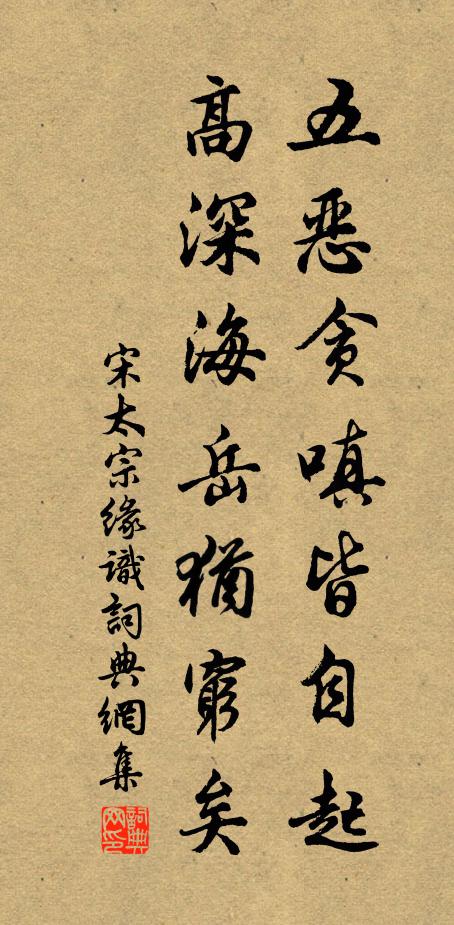 五惡貪嗔皆自起
高深海岳猶窮矣
宋太宗緣識詞典網集
詞典網印